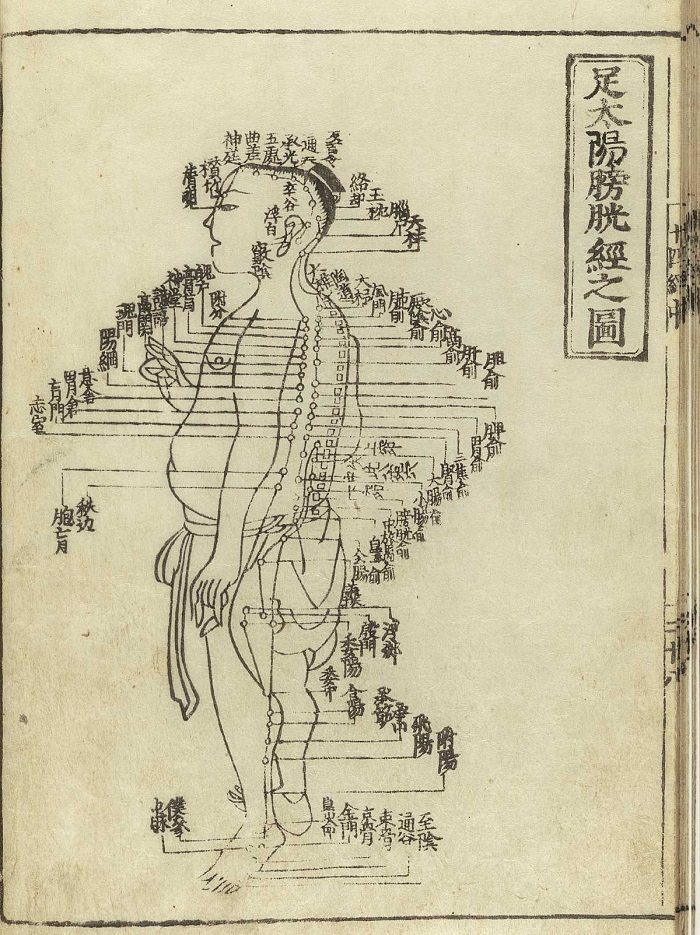 足太陽膀胱經之圖
神庭
曲差
五處
承光
通天
絡却
玉枕
天柱
攅竹
睛明
大杼
風門
肺俞
厥陰俞
心俞
膈俞
肝俞
胆俞
脾俞
胃俞
三焦俞
腎俞
大腸俞
小腸俞
膀胱俞
附分
魄戶
神堂
譩譆
膈關
魂門
陽綱
胃倉
肓門
志室
胞肓
秩边
殷門
浮郄
委陽
委中
合陽
承筋
飛陽
附陽
僕參
申脉
金門
京骨
束骨
通谷
至陰